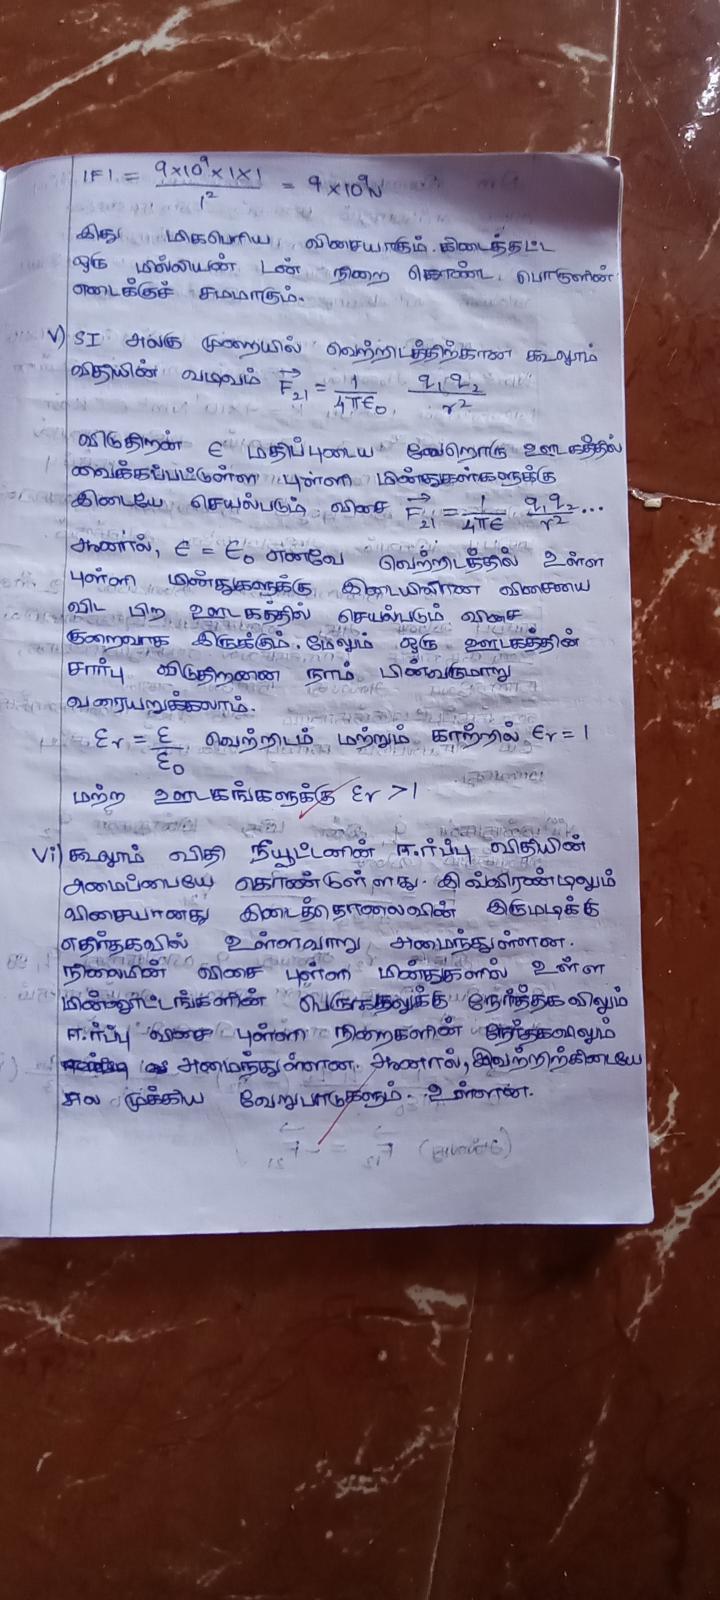 |F| = 9×10⁹×1×1 / 1² = 9×10⁹N
இது மிகபெரிய விசையாகும். கிடைத்தட்ட
ஒரு மில்லியன் டன் நிறை கொண்ட பொருளின்
எடைக்குச் சமமாகும்.
v) SI அலகு முறையில் வெற்றிடத்திற்கான கூலூம்
விதியின் வடிவம் F⃗₂₁ = 1/4πϵ₀ q₁q₂/r²
விடுதிறன் ϵ மதிப்புடைய வேறொரு ஊடகத்தில்
வைக்கப்பட்டுள்ள புள்ளி மின்துகள்களுக்கு
இடையே செயல்படும் விசை F⃗₂₁ = 1/4πϵ q₁q₂/r² ...
ஆனால், ϵ = ϵ₀ எனவே வெற்றிடத்தில் உள்ள
புள்ளி மின்துகளுக்கு இடையிலான விசையை
விட பிற ஊடகத்தில் செயல்படும் விசை
குறைவாக இருக்கும். மேலும் ஒரு ஊடகத்தின்
சார்பு விடுதிறனை நாம் பின்வருமாறு
வரையறுக்கலாம்.
εr = ε/ε₀ வெற்றிடம் மற்றும் காற்றில் εr = 1
மற்ற ஊடகங்களுக்கு εr > 1
vi) கூலூம் விதி நியூட்டனின் ஈர்ப்பு விதியின்
அமைப்பையே கொண்டுள்ளது. இவ்விரண்டிலும்
விசையானது இடைத்தொலைவின் இருமடிக்கு
எதிர்தகவில் உள்ளவாறு அமைந்துள்ளன.
நிலைமின் விசை புள்ளி மின்துகளில் உள்ள
மின்னூட்டங்களின் பெருக்கதலுக்கு நேர்த்தகவிலும்
ஈர்ப்பு விசை புள்ளி நிறைகளின் நேர்தகவிலும்
அமைந்துள்ளன. ஆனால், இவற்றிற்கிடையே
சில முக்கிய வேறுபாடுகளும். உள்ளன.